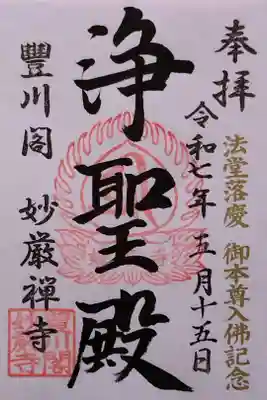 奉拝
法堂落慶 御本尊入佛記念
令和七年 五月十五日
浄聖殿
豐川閣 妙厳禅寺